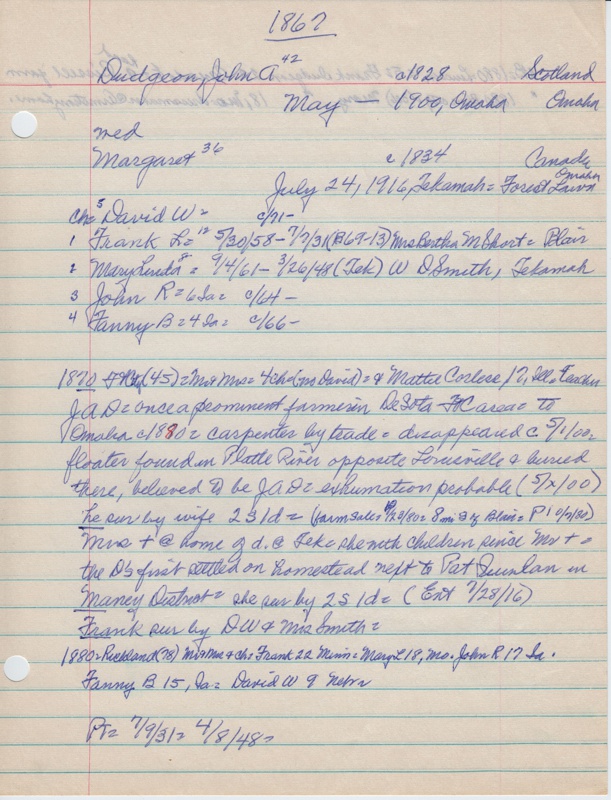 1867
Dudgeon, John A 42 c1828 Scotland
May — 1900, Omaha Omaha
med
Margaret 36 c 1834 Canada
July 24, 1916, Tekamah = Forest Lawn Omaha
Ch = 5 David W = c/71 -
1 Frank L = 12 5/30/58 - 7/7/31 (B69-13) Mrs Bertha M Short = Blair
2 Mary Linda 8 = 9/4/61 - 3/26/48 (Tek) W D Smith, Tekamah
3 John R = 6 Ia = c/64 -
4 Fanny B = 4 Ia = c/66 -
1870 (45) = Mr & Mrs = 4 ch = (no David) = & Mattie 17, Ill. Teacher
JAD = once a prominent farmer in DeSota - area = to
Omaha c1880 = carpenter by trade = disappeared c 5/1/00 =
floater found in Platte River opposite Louisville & buried
there, believed to be JAD = exhumation probable (5/x/00)
he sur by wife 2S 1d = (farm sale = 8 mi of Blair = P
Mrs + @ home of d. @ Tek = she with children since Mr + =
the D's first settled on homestead next to Pat Quinlan in
Maney District = she sur by 2S 1d = (Ent 7/28/16)
Frank sur by DW & Mrs Smith =
1880 = Richland (78) Mr & Mrs & Ch = Frank 22 Minn = Mary L 18, Mo. John R 17 Ia.
Fanny B 15, Ia = David W 9 Nebr
PT = 7/9/31 = 4/8/48 =